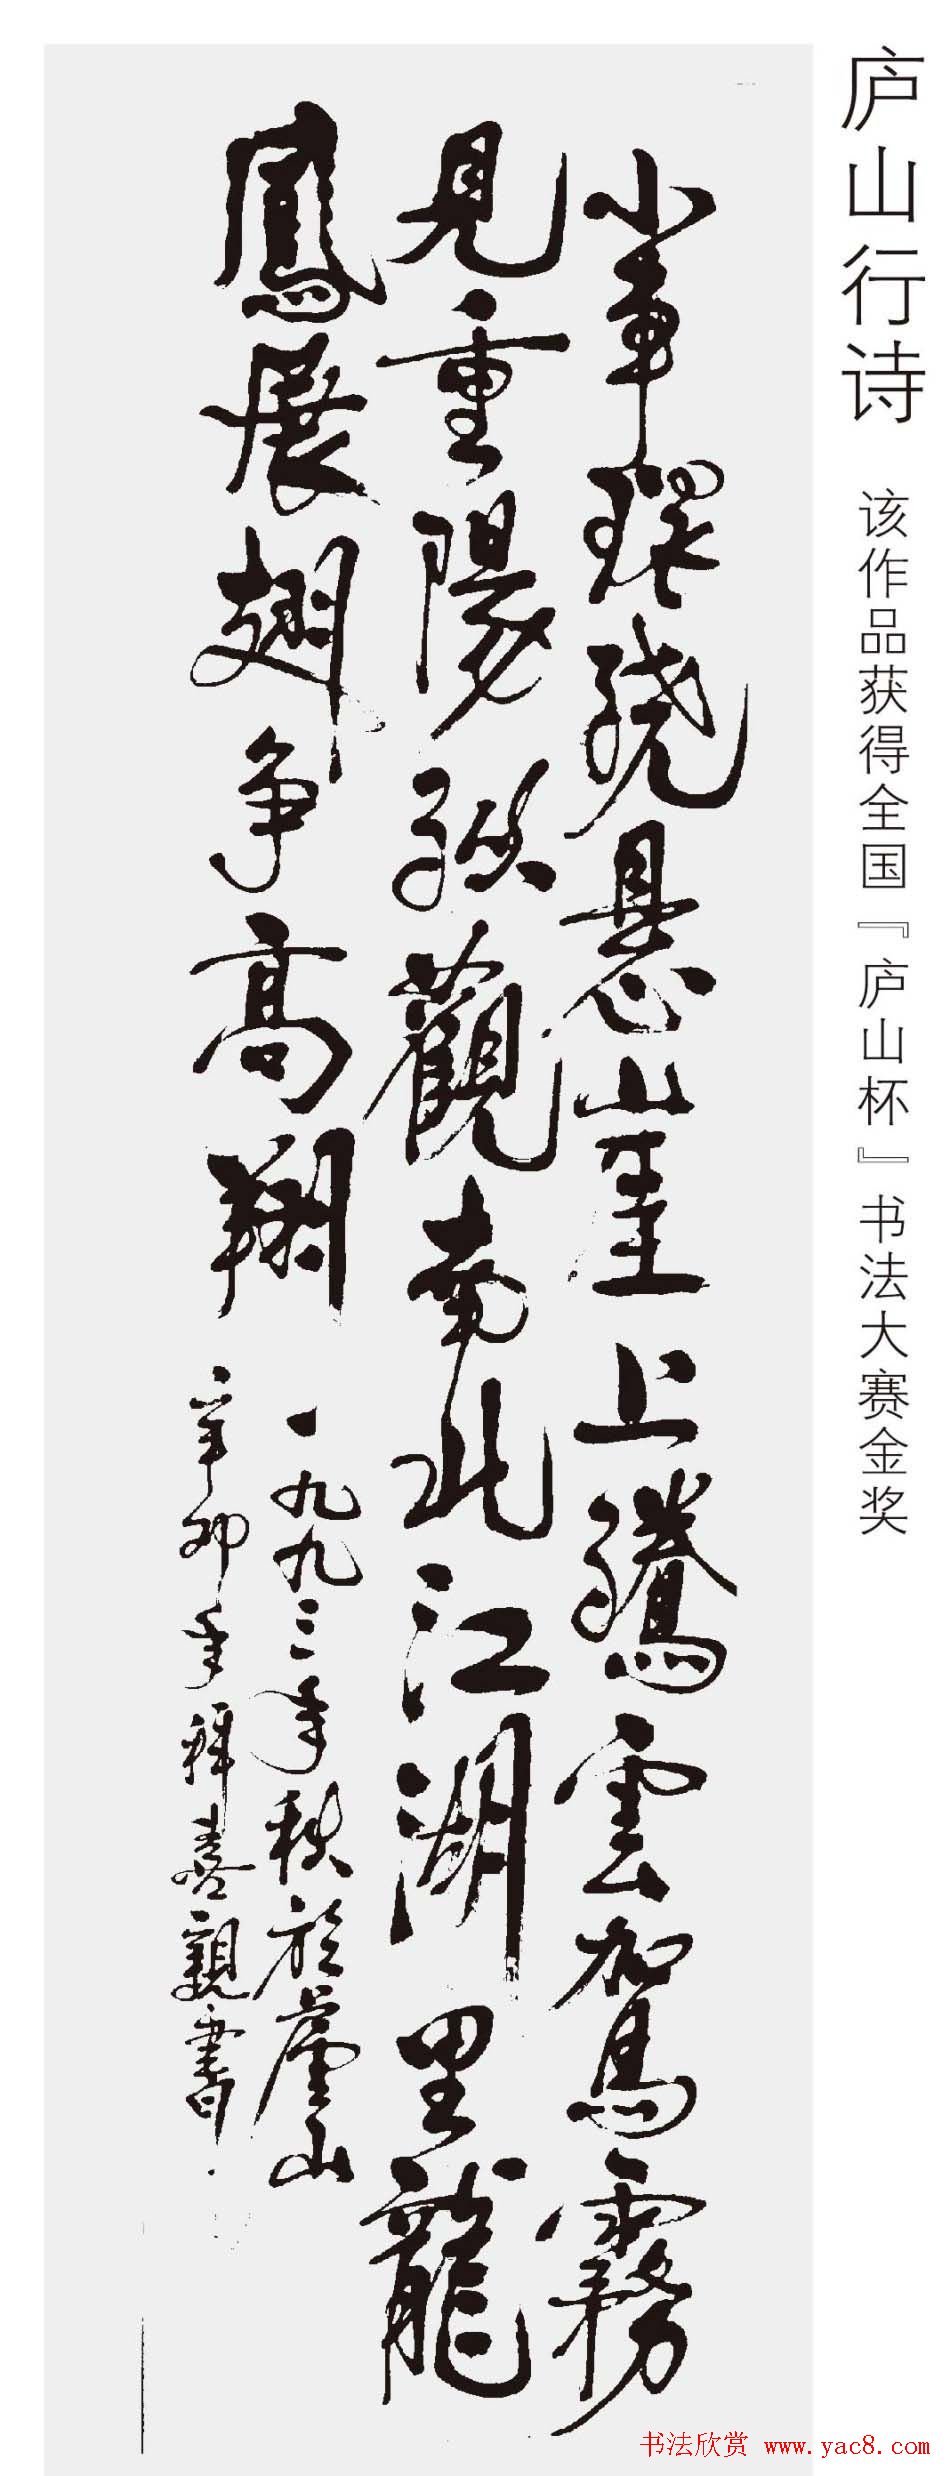 庐山行诗
该作品获得全国『庐山杯』书法大赛金奖
小車環繞悬崖上騰雲駕霧
見重陽縱觀南北江湖里龍
鳳展翅争高翔
一九九三年秋於廬山
辛卯年拜喜親書
书法欣赏 www.yac8.com